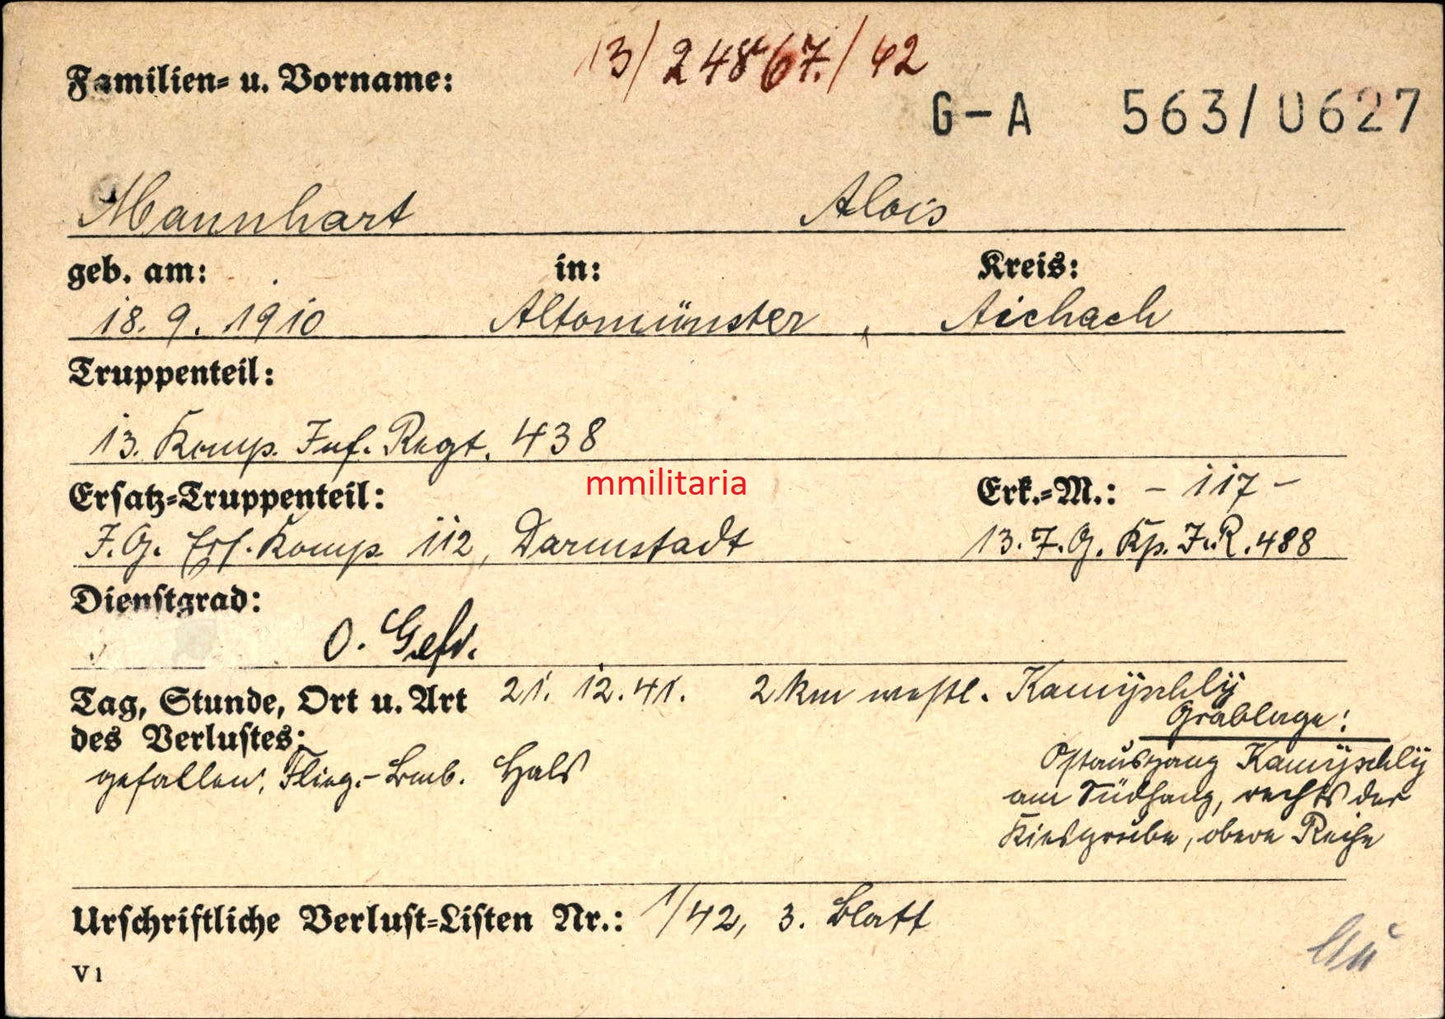 13/24867./42
Familien- u. Vorname:
G-A 563/0627
Mannhart Alois
geb. am: in: Kreis:
18.9.1910 Altomünster, Aichach
Truppenteil:
13. Komp. Inf. Regt. 438
mmilitaria
Ersatz-Truppenteil: Erk.-M.: - 117 -
I.G. Ers. Komp 112, Darmstadt 13. I.G. Kp. I.R. 488
Dienstgrad:
O. Gefr.
Tag, Stunde, Ort u. Art 21. 12. 41. 2 km westl. Kamyschly
des Verlustes: Grablage:
gefallen, Flieg.-Bmb. Hals Ostausgang Kamyschly
am Südhang, rechts der
Kiesgrube, obere Reihe
Urschriftliche Verlust-Listen Nr.: 1/42, 3. Blatt
V 1